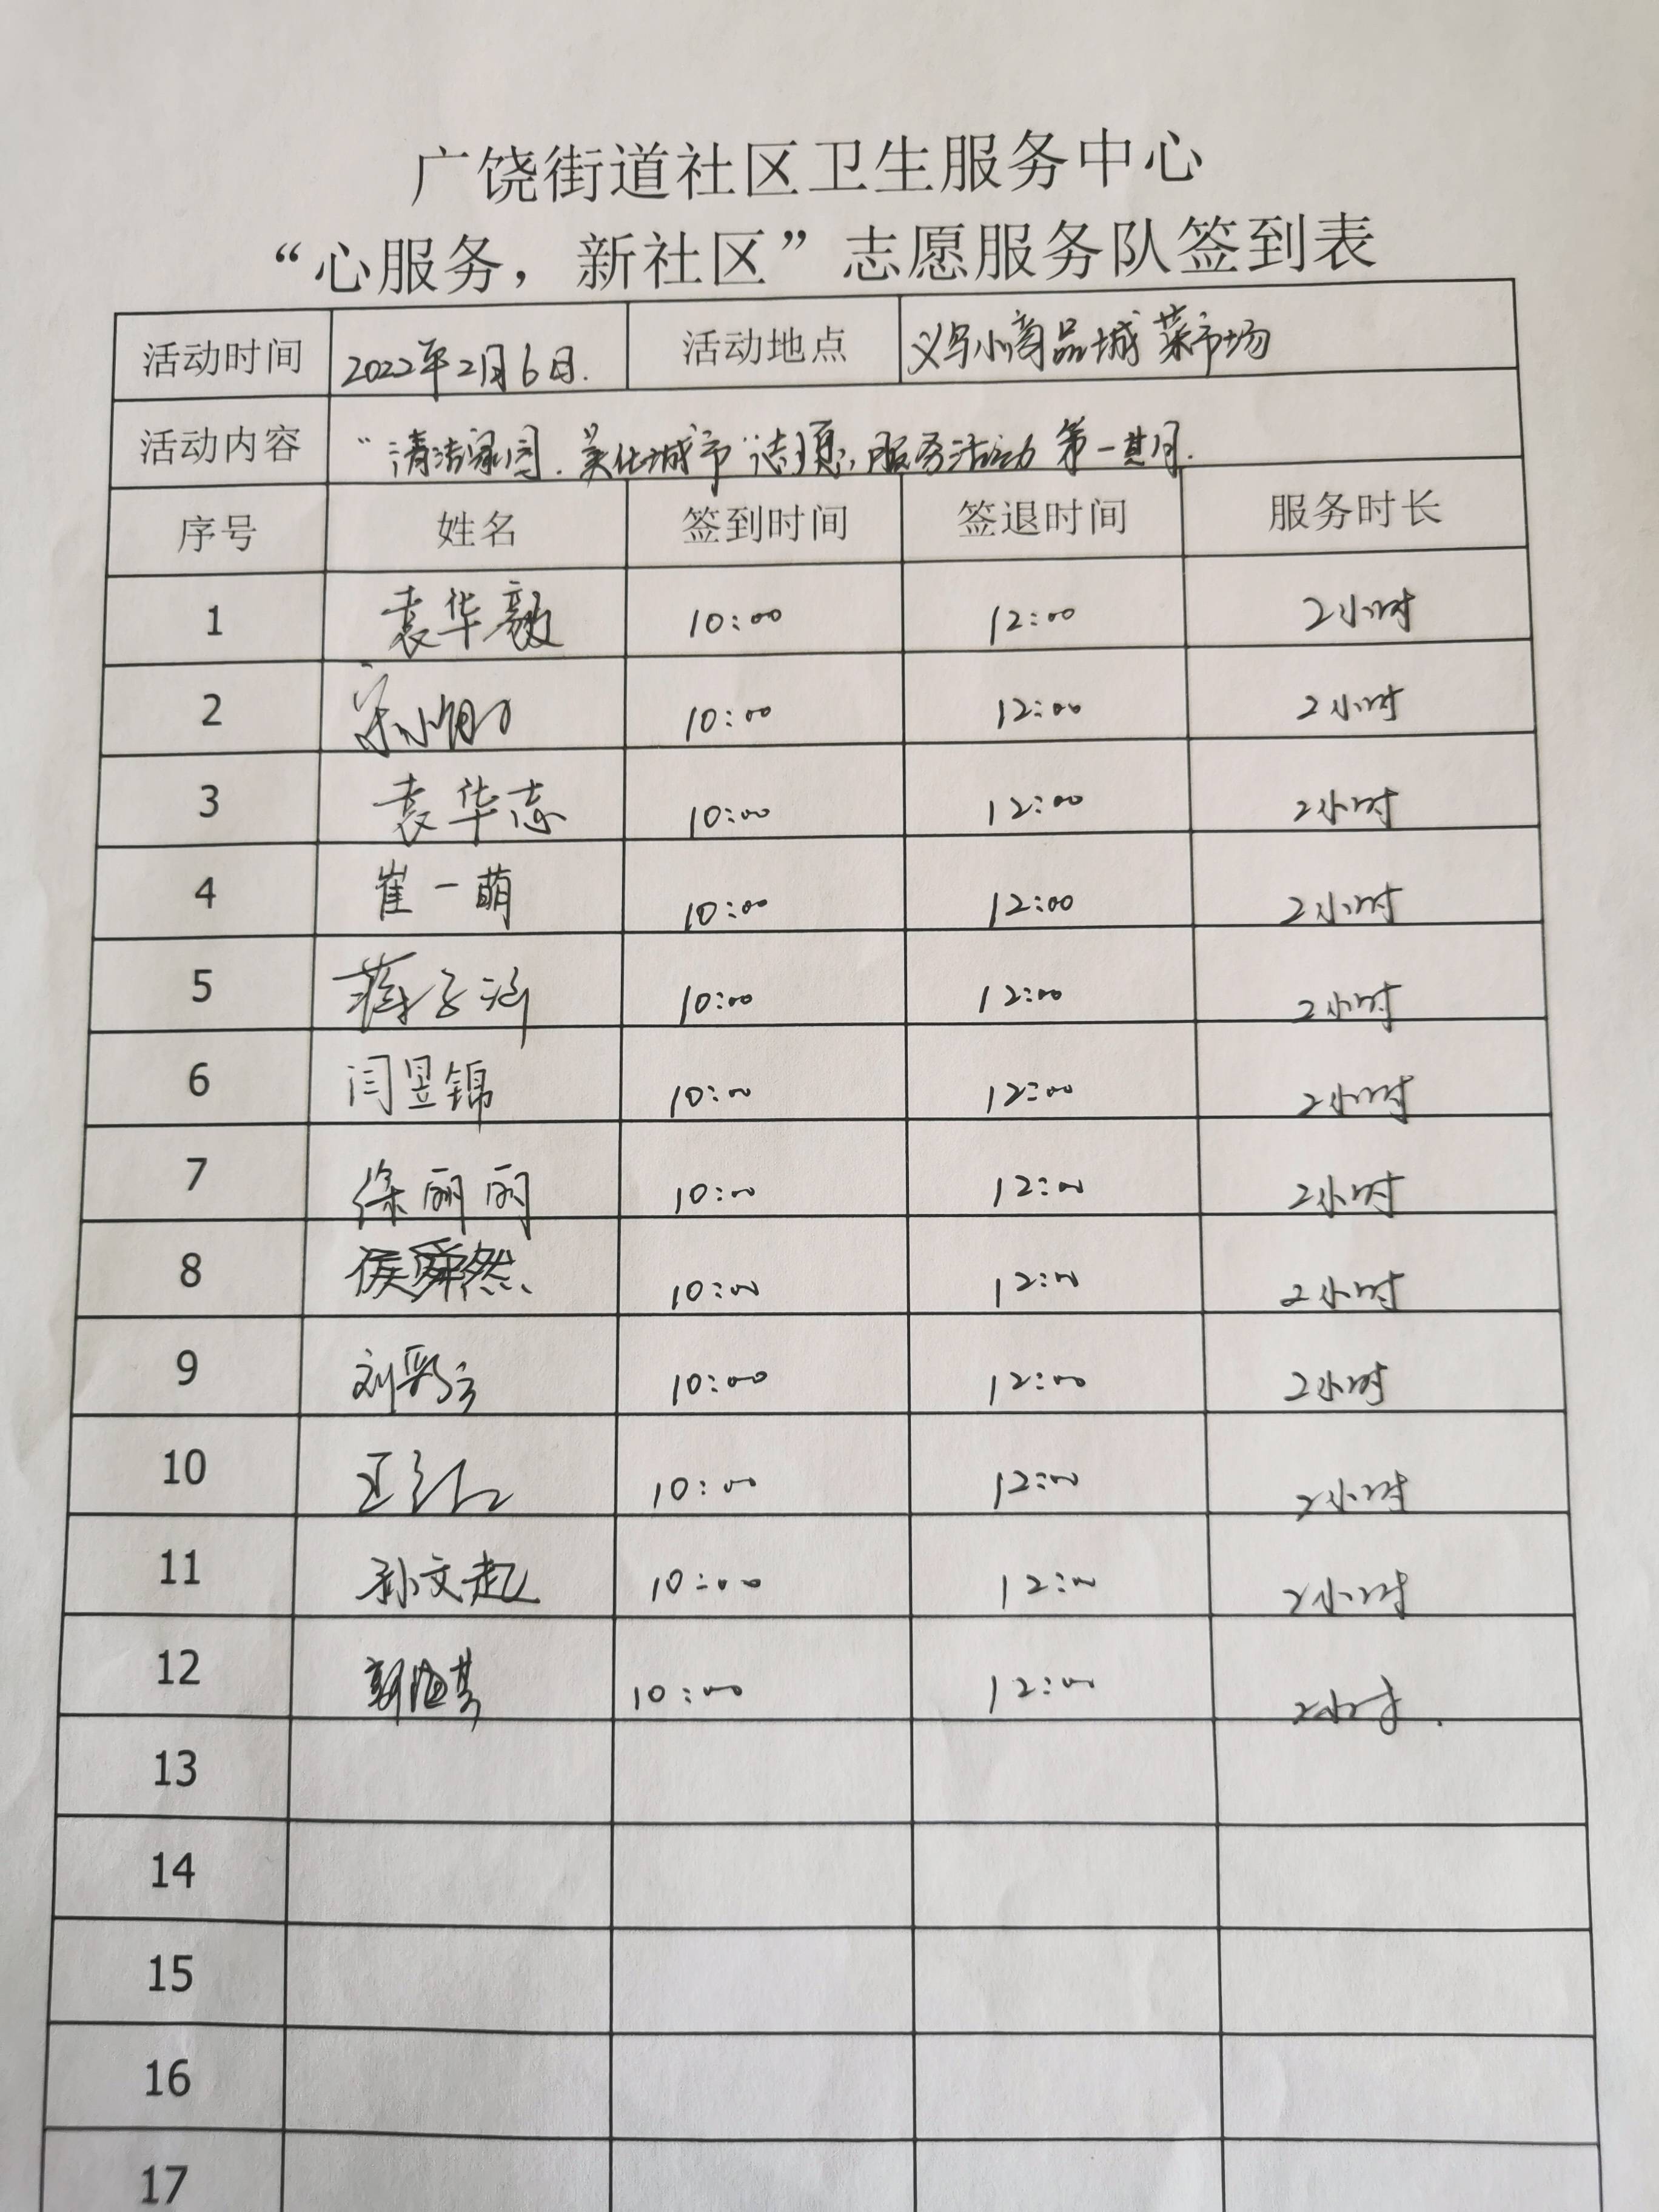 广饶街道社区卫生服务中心
“心服务，新社区”志愿服务队签到表
活动时间 2022年2月6日. 活动地点 义乌小商品城菜市场
活动内容 “清洁家园.美化城市”志愿服务活动第一期.
序号 姓名 签到时间 签退时间 服务时长
1 袁华毅 10:00 12:00 2小时
2 10:00 12:00 2小时
3 袁华志 10:00 12:00 2小时
4 崔一萌 10:00 12:00 2小时
5 蒋子涵 10:00 12:00 2小时
6 闫昱锦 10:00 12:00 2小时
7 徐丽丽 10:00 12:00 2小时
8 侯舜然 10:00 12:00 2小时
9 刘彩云 10:00 12:00 2小时
10 10:00 12:00 2小时
11 孙文起 10:00 12:00 2小时
12 10:00 12:00 2小时.
13
14
15
16
17